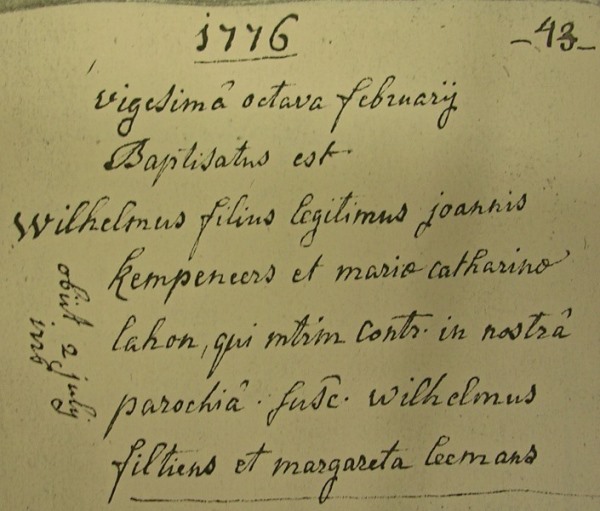 1776
-43-
vigesimâ octava februarij
Baptisatus est.
Wilhelmus filius legitimus joannis
kempeneers et mariæ catharinæ
lahon, qui mtrim contr. in nostrâ
parochiâ. susc. wilhelmus
filtiens et margareta leemans
obiit 2 july